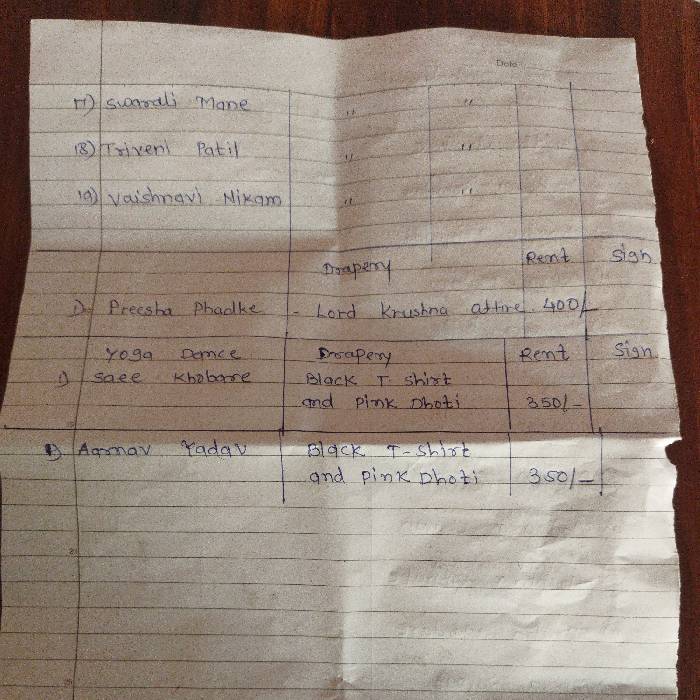 Date
17) Swarali Mane " "
18) Triveni Patil " "
19) Vaishnavi Nikam " "
Drapery Rent Sign
1) Preesha Phadke - Lord Krushna attire 400/-
Yoga Dance Drapery Rent Sign
1) Saee Khobare Black T shirt
and Pink Dhoti 350/-
Aarnav Yadav Black T-shirt
and Pink Dhoti 350/-